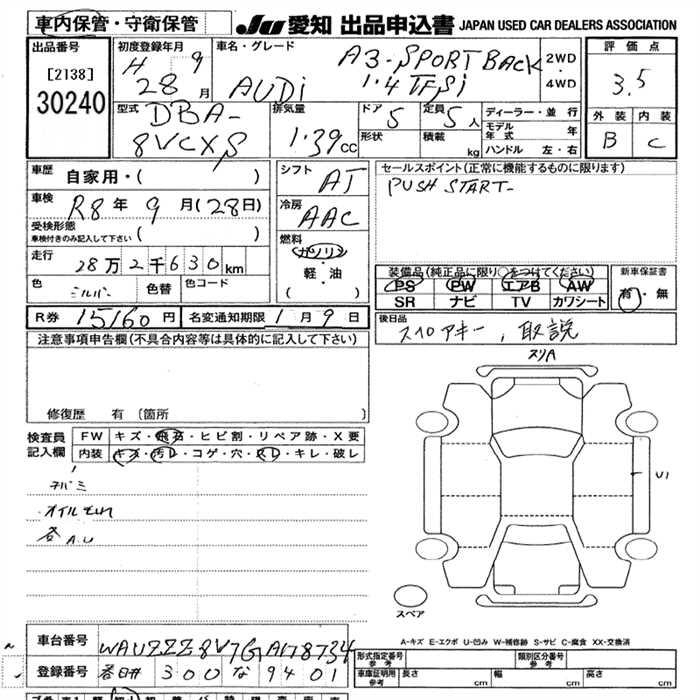 車内保管・守衛保管
JU 愛知 出品申込書 JAPAN USED CAR DEALERS ASSOCIATION
出品番号 [2138] 30240
初度登録年月 H 28 年 9 月
車名・グレード AUDi A3-SPORTBACK 1.4 TFSi
2WD・4WD
評価点 3.5
外装 B 内装 C
型式 DBA-8VCXS
排気量 1.39 cc
ドア 5
形状
定員 5 人
積載 kg
ディーラー・並行
モデル年式 年
ハンドル 左・右
車歴 自家用・( )
車検 R8 年 9 月 (28日)
受検形態 車検付きのみ記入して下さい ( )
走行 28万2千630km
色 シルバー 色替 色コード
シフト AT
冷房 AAC
燃料 ガソリン・軽・油 ( )
セールスポイント(正常に機能するものに限ります)
PUSH START-
装備品(純正品に限り○をつけてください)
PS PW エアB AW
SR ナビ TV カワシート
新車保証書 有・無
R券 15160円 名変通知期限 1月9日
後日品 スペアキー, 取説
注意事項申告欄(不具合内容等は具体的に記入して下さい)
修復歴 有 〔箇所 〕
検査員記入欄
FW キズ・飛石・ヒビ割・リペア跡・X要
内装 キズ・汚レ・コゲ・穴・スレ・キレ・破レ
オイルもれ
各A.U
スリA
U1
スペア
A-キズ E-エクボ U-凹み W-補修跡 S-サビ C-腐食 XX-交換済
車台番号 WAUZZZ8V7GA178734
登録番号 春日井 300 な 9401
形式指定番号 参考 類別区分番号 参考
車庫証明用 参考 長さ cm 幅 cm 高さ cm